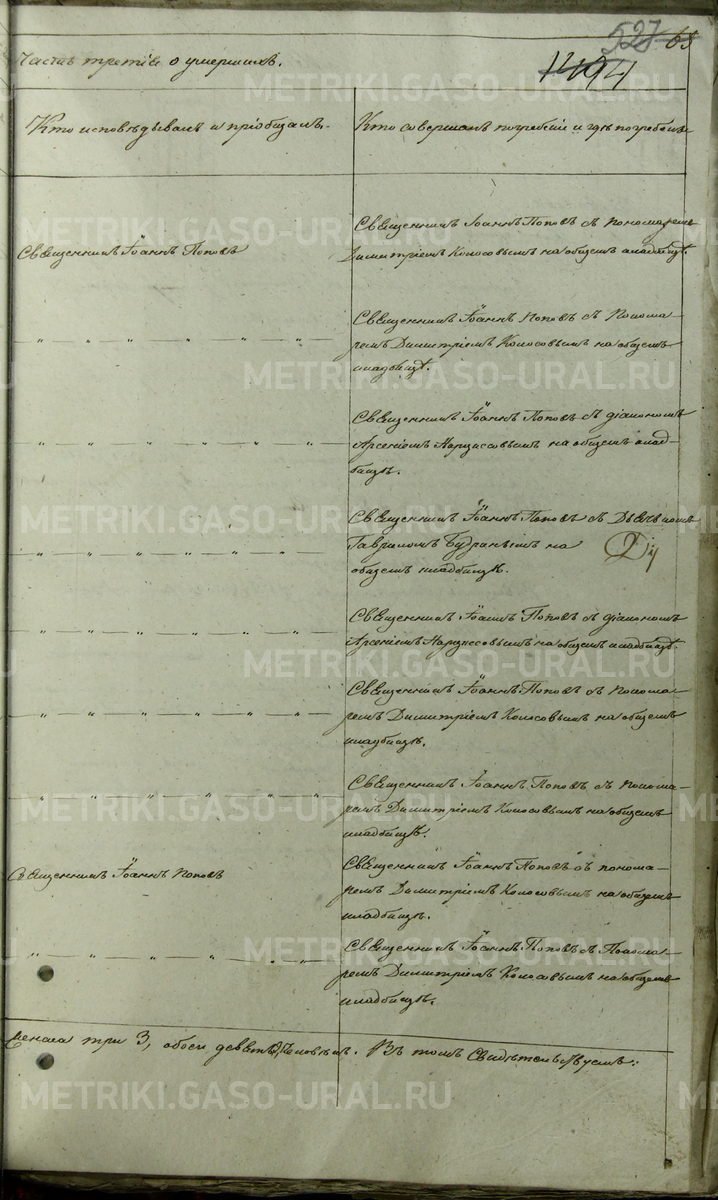 527 65
1494
Часть третія о умершихъ.
Кто исповѣдывалъ и пріобщалъ.
Кто совершалъ погребеніе и гдѣ погребены.
Священникъ Іоаннъ Поповъ
Священникъ Іоаннъ Поповъ съ пономаремъ
Димитріемъ Колосовымъ на общемъ кладбищѣ.
" " " " " "
Священникъ Іоаннъ Поповъ съ Понома-
ремъ Димитріемъ Колосовымъ на общемъ
кладбищѣ.
" " " " " "
Священникъ Іоаннъ Поповъ съ діакономъ
Арсеніемъ Нарциссовымъ на общемъ клад-
бищѣ.
" " " " " "
Священникъ Іоаннъ Поповъ съ Дьячкомъ
Гавриломъ на
общемъ кладбищѣ.
" " " " " "
Священникъ Іоаннъ Поповъ съ діакономъ
Арсеніемъ Нарциссовымъ на общемъ кладбищѣ.
" " " " " "
Священникъ Іоаннъ Поповъ съ Понома-
ремъ Димитріемъ Колосовымъ на общемъ
кладбищѣ.
" " " " " "
Священникъ Іоаннъ Поповъ съ Понома-
ремъ Димитріемъ Колосовымъ на общемъ
кладбищѣ.
Священникъ Іоаннъ Поповъ
Священникъ Іоаннъ Поповъ съ понома-
ремъ Димитріемъ Колосовымъ на общемъ
кладбищѣ.
" " " " "
Священникъ Іоаннъ Поповъ съ Понома-
ремъ Димитріемъ Колосовымъ на общемъ
кладбищѣ.
три 3, обоего девять 9, человѣкъ. Въ томъ Свидѣтельствуемъ:
METRIKI.GASO-URAL.RU
METRIKI.GASO-URAL.RU
METRIKI.GASO-URAL.RU
METRIKI.GASO-URAL.RU
METRIKI.GASO-URAL.RU
METRIKI.GASO-URAL.RU
METRIKI.GASO-URAL.RU
METRIKI.GASO-URAL.RU